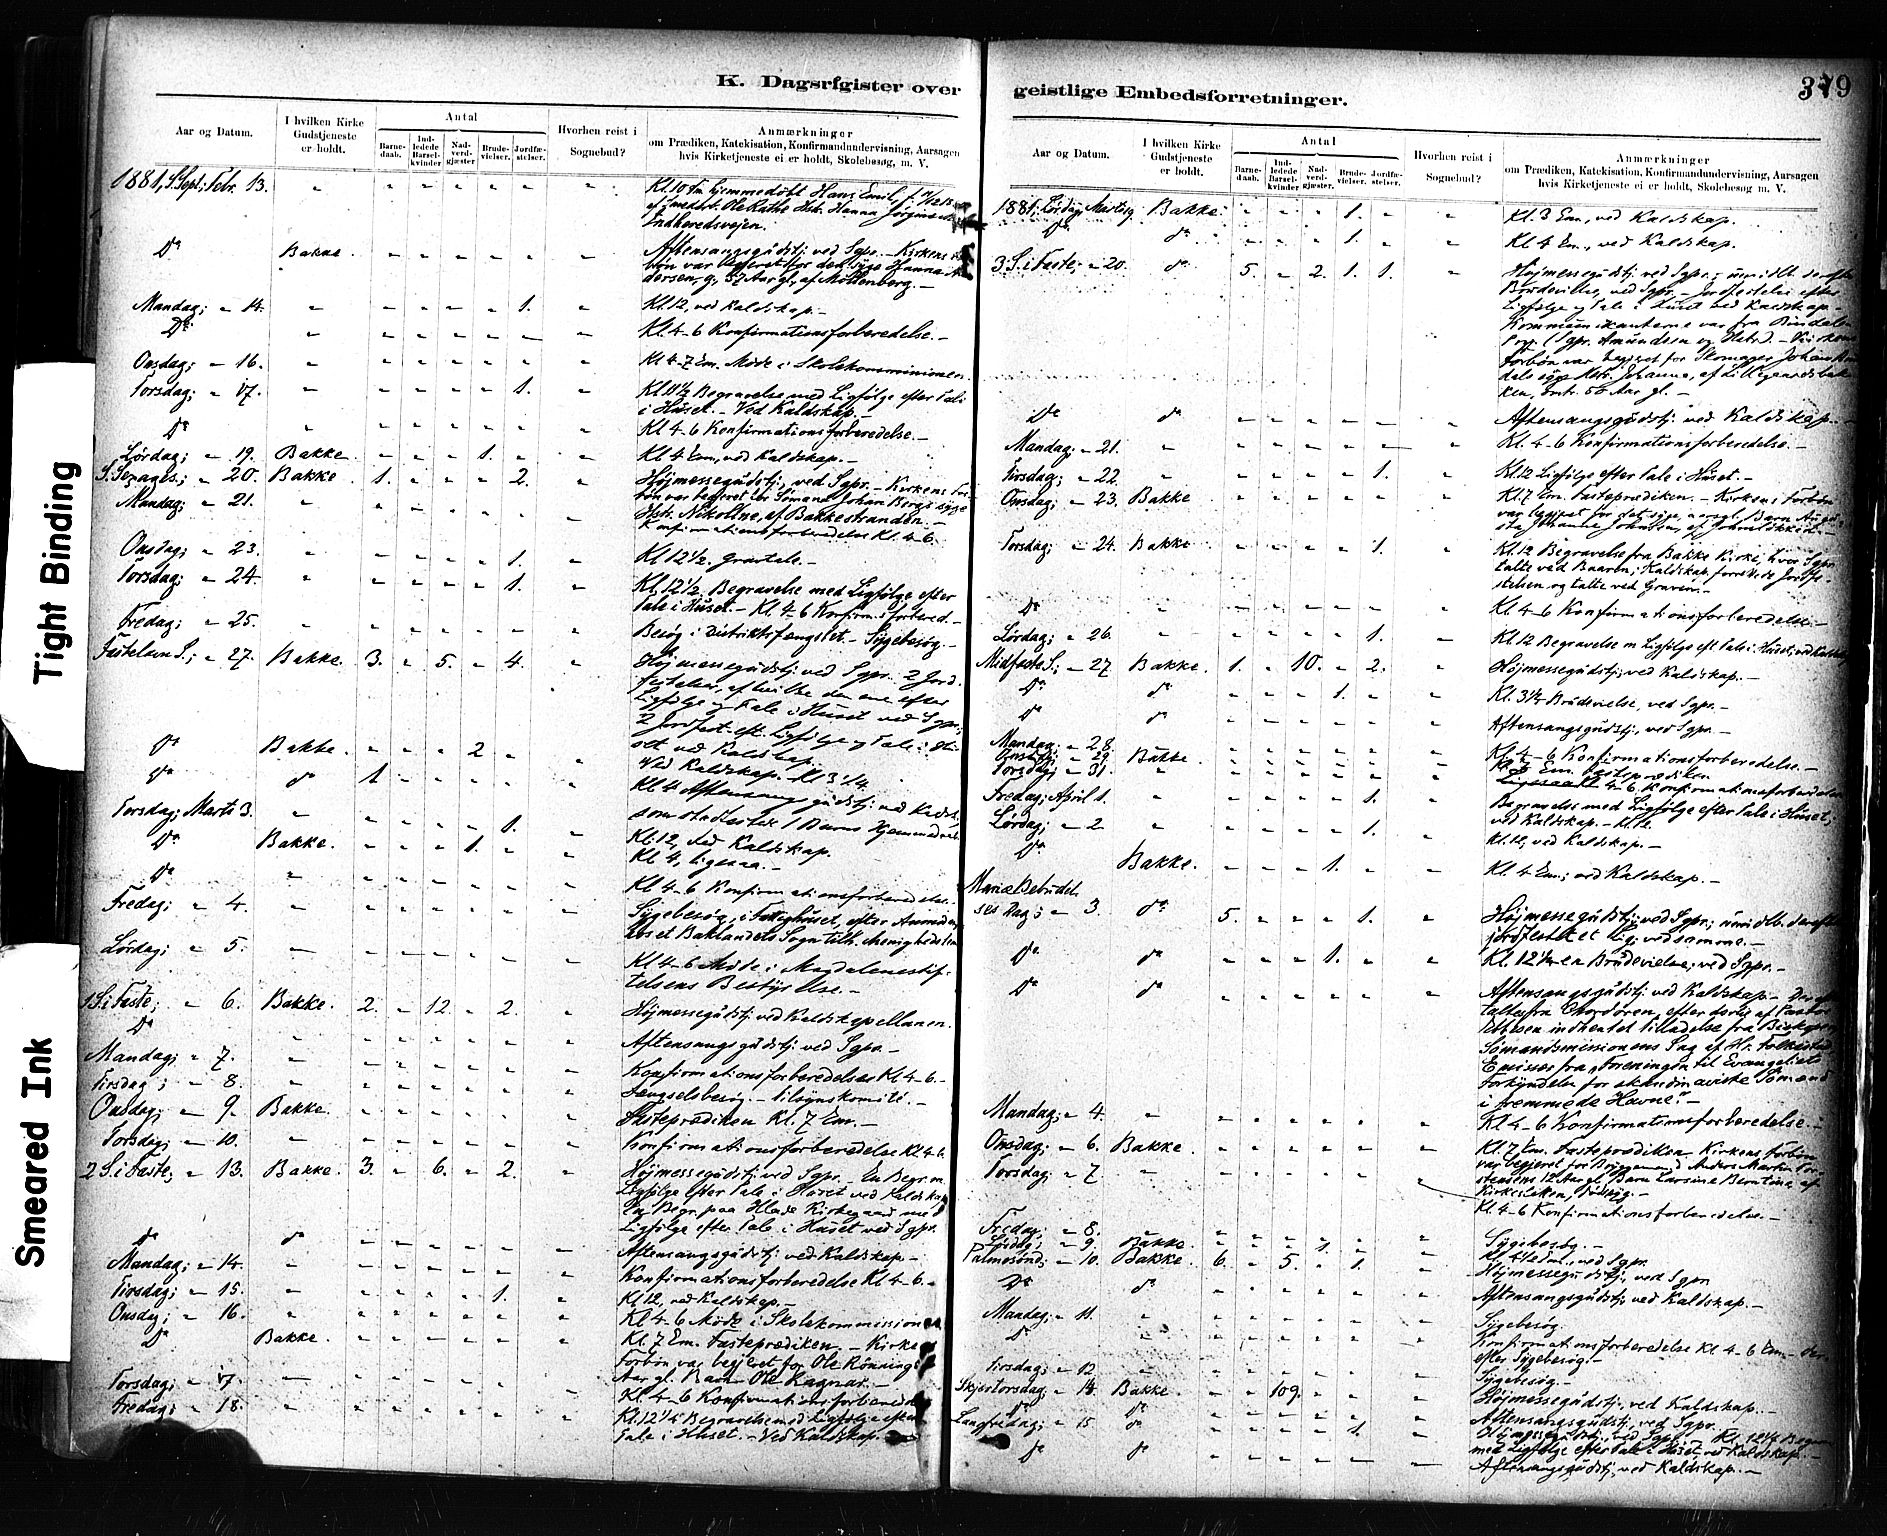 Tight Binding
Smeared Ink
K. Dagsrfgister over
Aar og Datum.
I hvilken Kirke Gudstjeneste er holdt.
Antal
Barne-daab.
Ind-ledede Barsel-kvinder
Nad-verd-gjæster
Brude-vielser.
Jordfæ-stelser.
Hvorhen reist i Sognebud?
Anmærkninger
om Prædiken, Katekisation, Konfirmandundervisning, Aarsagen
hvis Kirketjeneste ei er holdt, Skolebesøg, m. V.
1881, S. Sept; Febr. 13. Kl. 10 Fm. hjemmedøbt Hans Emil,
Indherredsveien.
Dº Bakke Aftensangsgudstj. ved Sgpr. - Kirkens
bøn var begjeret for den syge Hanna
57 Aar gl., af Møllenberg. -
Mandag; " 14. 1. Kl. 12, ved Kaldskap. -
Dº Kl. 4-6 Konfirmationsforberedelse. -
Onsdag; " 16. Kl. 4-7 Em. Møde i Skolekommissionen.
Torsdag; " 17. 1. Kl. 11½ Begravelse med Ligfølge efter Tale
i Huset. - Ved Kaldskap. -
Dº Kl. 4-6 Konfirmationsforberedelse. -
Lørdag; " 19. Bakke 1. Kl. 4 Em., ved Kaldskap. -
S. Sexages.; " 20. Bakke 1. 2. Højmessegudstj., ved Sgpr. - Kirkens For-
bøn var begjeret for Sømand Johan Bergs syge
Mandag; " 21. Hstr. Nikoline, af Bakkestranden. -
Konfirmationsforberedelse Kl. 4-6.
Onsdag; " 23. 1. Kl. 12½. Gravtale. -
Torsdag; " 24. 1. Kl. 12½. Begravelse med Ligfølge efter
Tale i Huset. - Kl. 4-6 Konfirm.forbered. -
Fredag; " 25. Besøg i Distriktsfængslet. - Sygebesøg. -
Fastelavn S.; " 27. Bakke. 3. 5. 4. Højmessegudstj. ved Sgpr. 2 Jord-
festelser, af hvilke den ene efter
Ligfølge og Tale i Huset ved Sgpr.
2 Jordfest. eft. Ligfølge og Tale i Hu-
set ved Kaldskap.
Dº Bakke. 2 Ved Kaldskap. Kl. 3¼.
Dº dº 1. Kl. 4 Aftensangsgudstj. ved
Torsdag; Marts 3. 1. Kl. 12, ved Kaldskap.
Dº Bakke. 1. Kl. 4, ligesaa. -
Dº Kl. 4-6 Konfirmationsforberedelse. -
Fredag; " 4. Sygebesøg i Fattighuset, efter
Baklandets Sogn tilh. Menighedslem
Lørdag; " 5. Kl. 4-6 Møde i Magdalenestif-
telsens Bestyrelse. -
1 S. i Faste; " 6. Bakke. 2. 12. 2. Højmessegudstj. ved Kaldskapellanen.
Dº Aftensangsgudstj. ved Sgpr. -
Mandag; " 7. Konfirmationsforberedelse Kl. 4-6. -
Tirsdag; " 8. Fengselsbesøg. - Tilsynskomité. -
Onsdag; " 9. Bakke. Fasteprædiken Kl. 7 Em. -
Torsdag; " 10. Konfirmationsforberedelse Kl. 4-6.
2 S. i Faste; " 13. Bakke. 3. 6. 2. Højmessegudstj. ved Sgpr. - En Begr. m.
Ligfølge efter Tale i Huset ved Kaldskap.
En Begr. paa Hlade Kirkegaard med
Ligfølge efter Tale i Huset ved Sgpr.
Dº dº Aftensangsgudstj. ved Kaldskap. -
Mandag; " 14. Konfirmationsforberedelse Kl. 4-6. -
Tirsdag; " 15. 1. Kl. 12, ved Kaldskap. -
Onsdag; " 16. Kl. 4-6 Møde i Skolekommissionen
Dº Bakke. Kl. 7 Em. Fasteprædiken. - Kirke
Forbøn var begjeret for Ole Rønning
Aar gl. Barn Ole Ragnar. -
Torsdag; " 17. Kl. 4-6 Konfirmationsforberedelse
Fredag; " 18. Kl. 12¼ Begravelse med Ligfølge efter
Tale i Huset. - Ved Kaldskap. -
379
geistlige Embedsforretninger.
Aar og Datum.
I hvilken Kirke Gudstjeneste er holdt.
Antal
Barne-daab.
Ind-ledede Barsel-kvinder
Nad-verd-gjæster.
Brude-vielser.
Jordfæ-stelser.
Hvorhen reist i Sognebud?
Anmærkninger
om Prædiken, Katekisation, Konfirmandundervisning, Aarsagen
hvis Kirketjeneste ei er holdt, Skolebesøg m. V.
1881; Lørdag, Marts 19. Bakke. 1. Kl. 3 Em., ved Kaldskap.
Dº dº 1. Kl. 4 Em., ved Kaldskap.
3 S. i Faste; " 20. dº 5. 2. 1. 1. Højmessegudstj. ved Sgpr.;
Brudevielse, ved Sgpr. - Jordfestelse efter
Ligfølge og Tale i Huset ved Kaldskap. -
Kommunikanterne var fra Bindalens
Pgr. (Sgpr. Amundsen og Hstr.). -
Forbøn var begjeret for Skomager Johan
syge Hstr. Johanna, af
50 Aar gl. -
Dº dº Aftensangsgudstj. ved Kaldskap. -
Mandag; " 21. Kl. 4-6 Konfirmationsforberedelse. -
Tirsdag; " 22. 1. Kl. 12 Ligfølge efter Tale i Huset. -
Onsdag; " 23. Bakke Kl. 7 Em. Fasteprædiken. - Kirkens Forbøn
var begjeret for det syge, Barn
Johanna Johansen,
Torsdag; " 24. Bakke 1. Kl. 12 Begravelse fra Bakke Kirke, hvor Sgpr.
talte ved Baaren; Kaldskap. forrettede Jordfe-
stelsen og talte ved Graven. -
Dº Kl. 4-6 Konfirmationsforberedelse. -
Lørdag; " 26. 1. Kl. 12 Begravelse m. Ligfølge eft. Tale i Huset; ved Kaldskap.
Midfaste S.; " 27. Bakke. 1. 10. 2. Højmessegudstj., ved Kaldskap. -
Dº dº 1. Kl. 3½ Brudevielse, ved Sgpr. -
Dº dº Aftensangsgudstj., ved Sgpr. -
Mandag; " 28. Kl. 4-6 Konfirmationsforberedelse. -
Onsdag; " 29. Bakke. Kl. 7 Em. Fasteprædiken
Torsdag; " 31. 4-6. Konfirmationsforberedelse
Fredag; April 1. 1. Begravelse med Ligfølge efter Tale i Huset;
ved Kaldskap. - Kl. 12.
Lørdag; " 2. 1. Kl. 12, ved Kaldskap. -
Dº Bakke. 1. Kl. 4 Em., ved Kaldskap. -
Mariæ Bebudel-
ses Dag; " 3. dº 5. 1. Højmessegudstj. ved Sgpr.;
jordfestet et Lig; ved samme. -
Dº dº 1. Kl. 12½ en Brudevielse; ved Sgpr. -
Dº dº Aftensangsgudstj. ved Kaldskap. -
talte fra Chordøren, efter dertil af Pastor
indhentet Tilladelse fra Biskopen,
Sømandsmissionens Sag af Hr.
Emissær fra "Foreningen til Evangeliets
Forkyndelse for skandinaviske Sømænd
i fremmede Havne". -
Mandag; " 4. Kl. 4-6 Konfirmationsforberedelse. -
Onsdag; " 6. Bakke. Kl. 7 Em. Fasteprædiken. Kirkens Forbøn
Torsdag; " 7. var begjeret for Anders Martin Tor-
stensens 12 Aar gl. Barn Larsine Berntine, af
Kirkesletten, -
Kl. 4-6 Konfirmationsforberedelse. -
Fredag; " 8. Sygebesøg. -
Lørdag; " 9. Bakke. 1. Kl. 4½ Em., ved Sgpr.
Palmesønd.; " 10. Bakke. 6. 5. 1. Højmessegudstj., ved Sgpr.
Dº dº Aftensangsgudstj. ved Kaldskap. -
Mandag; " 11. Sygebesøg.
Dº Konfirmationsforberedelse Kl. 4-6 Em. - Der-
efter Sygebesøg. -
Tirsdag; " 12 Sygebesøg. -
Skjærtorsdag; " 14. Bakke. 109. Højmessegudstj. ved Kaldskap. -
Dº dº Aftensangsgudstj., ved Sgpr.
Langfredag; " 15 dº 1. Højmessegudstj., ved Sgpr. Kl. 12½ Begr.
med Ligfølge efter Tale i Huset, ved Kaldskap. -
Dº dº Aftensangsgudstj., ved Kaldskap. -